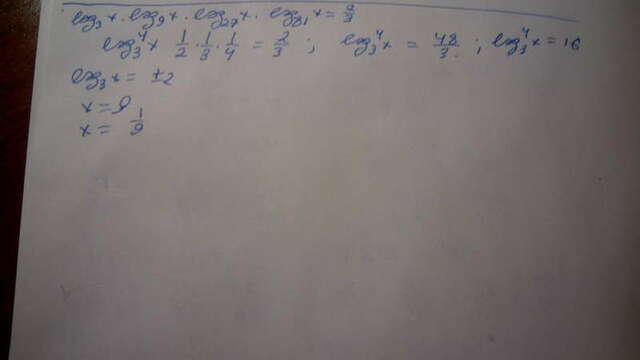 log₃x · log₉x · log₂₇x · log₈₁x = 2/3
log₃⁴x 1/2 · 1/3 · 1/4 = 2/3 ; log₃⁴x = 48/3 ; log₃⁴x = 16
log₃x = ±2
x = 9
x = 1/9